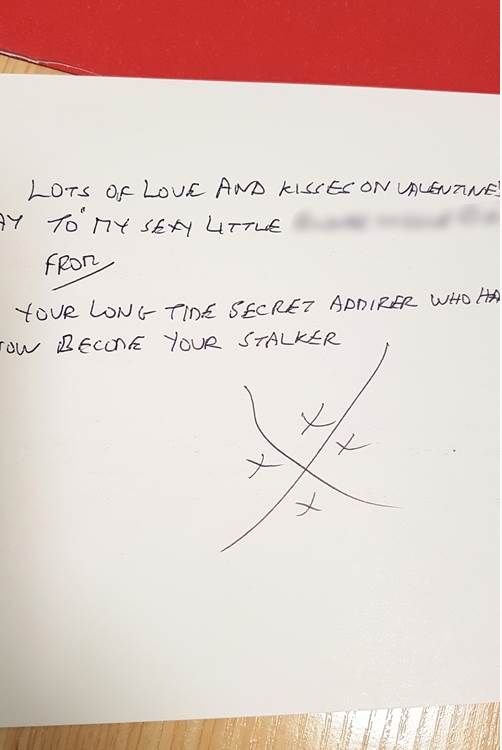 LOTS OF LOVE AND KISSES ON VALENTINES
AY TO MY SEXY LITTLE
FROM
YOUR LONG TIME SECRET ADMIRER WHO HA
OW BECOME YOUR STALKER
X
X
X
X
X